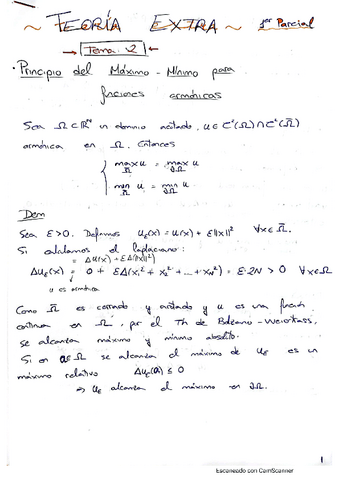 ~ TEORÍA EXTRA ~ 1er Parcial
→ Tema 2 ←
· Principio del Máximo-Mínimo para
funciones armónicas
Sea Ω⊂ℝᴺ un dominio acotado, u∈C²(Ω)∩C(Ω̄)
armónica en Ω. Entonces
{ max_Ω̄ u = max_∂Ω u
min_Ω̄ u = min_∂Ω u
Dem
Sea ε>0. Definimos u_ε(x) = u(x) + ε||x||² ∀x∈Ω̄.
Si calculamos el laplaciano:
= Δu(x) + εΔ(||x||²)
Δu_ε(x) = 0 + εΔ(x₁² + x₂² + ... + x_N²) = ε·2N > 0 ∀x∈Ω
u es armónica
Como Ω̄ es cerrado y acotado y u es una función
continua en Ω̄, por el Th de Bolzano-Weierstrass,
se alcanza máximo y mínimo absoluto.
Si en a∈Ω se alcanza el máximo de u_ε es un
máximo relativo Δu_ε(a) ≤ 0
⇒ u_ε alcanza el máximo en ∂Ω.
1
Escaneado con CamScanner